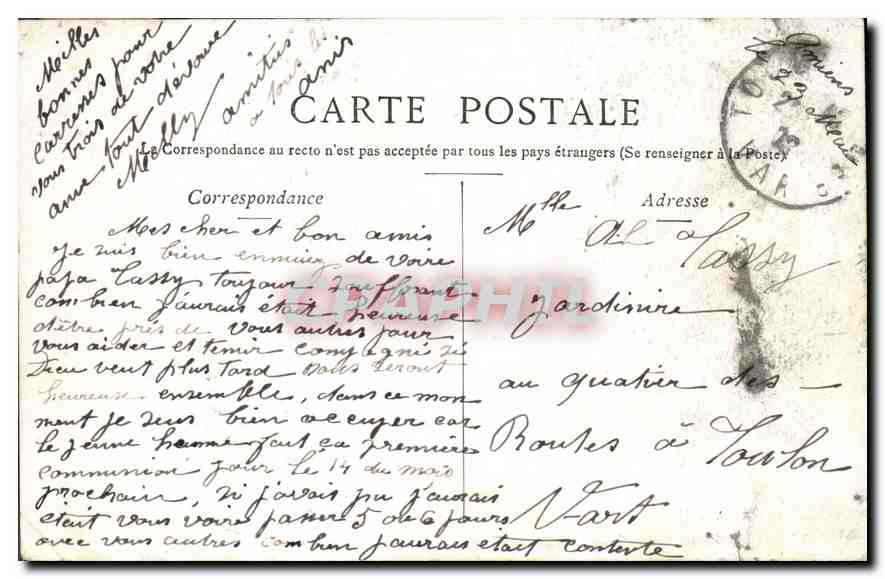 Milles
bonnes
carresses pour
vous trois de votre
amie tout dévouée
Milly
amitiés
a tous les
amis
Amiens
le 29
CARTE POSTALE
La Correspondance au recto n'est pas acceptée par tous les pays étrangers (Se renseigner à la Poste)
Correspondance
Mes cher et bon amis
Je suis bien ennuiez de voire
papa Tassy toujour souffrant
combien j'aurais était heureuse
d'être près de vous autres pour
vous aider et tenir compagnie si
Dieu veut plus tard nous seront
heureuse ensemble, dans ce mon
ment je suis bien occuper car
le jeune homme fait ça première
communion pour le 14 du mois
prochain, si j'avais pu j'aurais
était vous voire passer 5 ou 6 jours
avec vous autres combien j'aurais etait contente
Adresse
Mlle
Tassy
jardinire
au quatier des
Routes à Toulon
Vart
TO
VAR
GRAPHTI